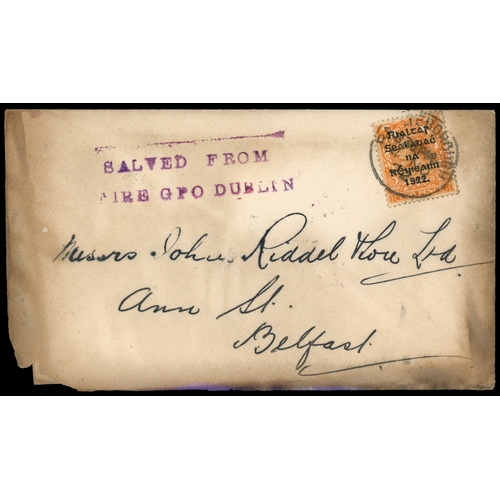 SALVED FROM
FIRE GPO DUBLIN
Rialtas
Sealadać
na
hÉireann
1922.
Messrs John Riddel & Son Ltd
Ann St.
Belfast.